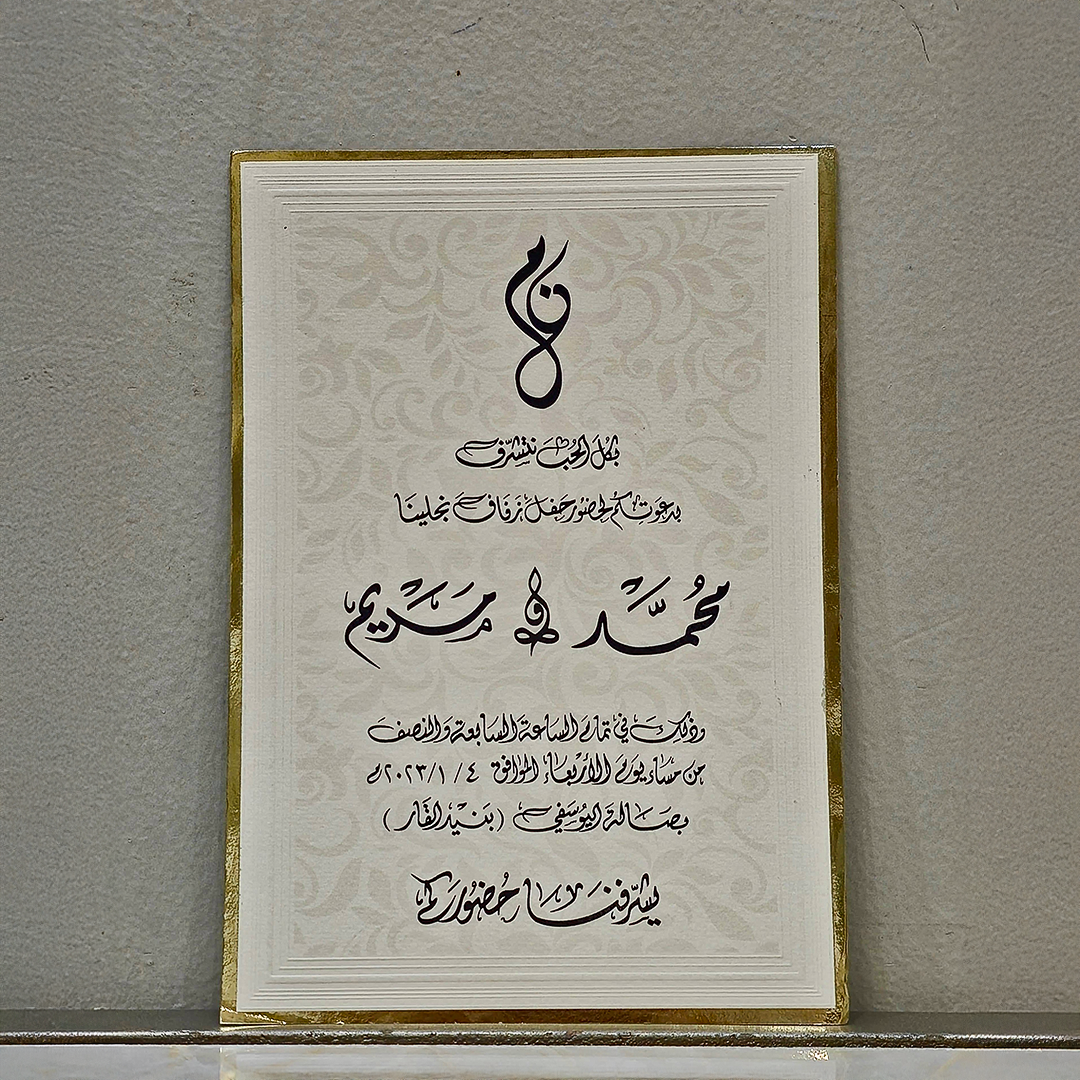 بكل الحب نتشرف
بدعوتكم لحضور حفل زفاف نجلينا
محمد و مريم
وذلك في تمام الساعة السابعة والنصف
من مساء يوم الأربعاء الموافق ٤ / ١ / ٢٠٢٣م
بصالة اليوسفي (بنيد القار)
يشرفنا حضوركم